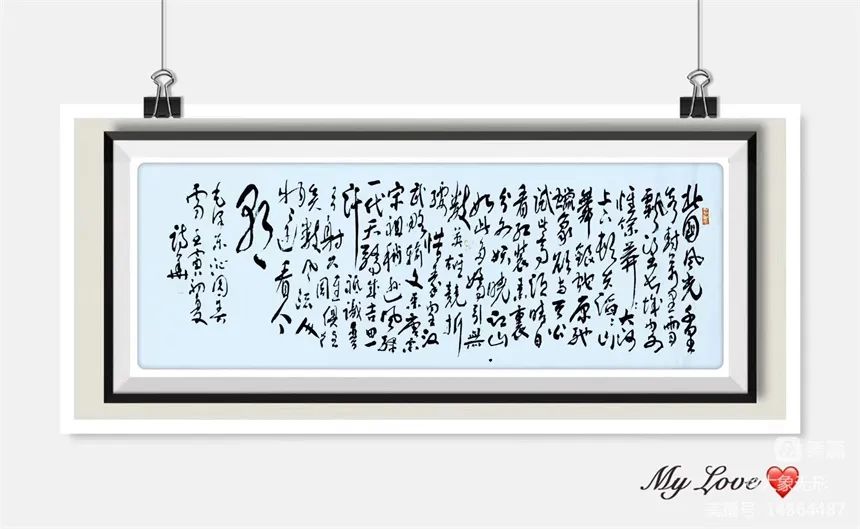 北国风光千里
冰封万里雪
飘望长城内外
惟余莽莽大河
上下顿失滔滔山
舞银蛇原驰
蜡象欲与天公
试比高须晴日
看红装素裹
分外妖娆江山
如此多娇引无
数英雄竞折
腰惜秦皇汉
武略输文采唐宗
宋祖稍逊风骚
一代天骄成吉思
汗只识弯
弓射大雕俱往
矣数风流人
物还看今
朝
毛泽东沁园春
雪壬寅初夏
My Love
美篇
大象无形
美篇号 14864487